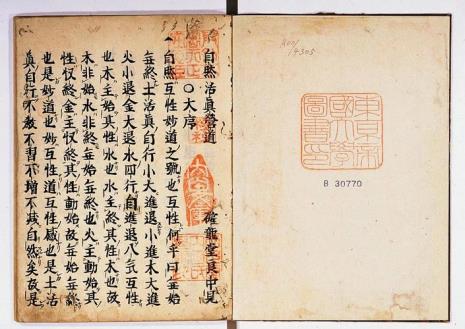 14305
東京帝
國大學
圖書印
B 30770
自然活真營道
確龍堂良中見
〇大序
自然互性妙道之號也互性何乎曰無始
無終土活真自行小大進退小進木大進
火小退金大退水四行自進退八氣互性
也木主始其性水也水主終其性木也故
木非始水非終無始無終也火主動始其
性収終金主収終其性動始故無始無終
也是妙道也妙互性道互性感也是土活
真自行不教不習不増不减自然矣故是